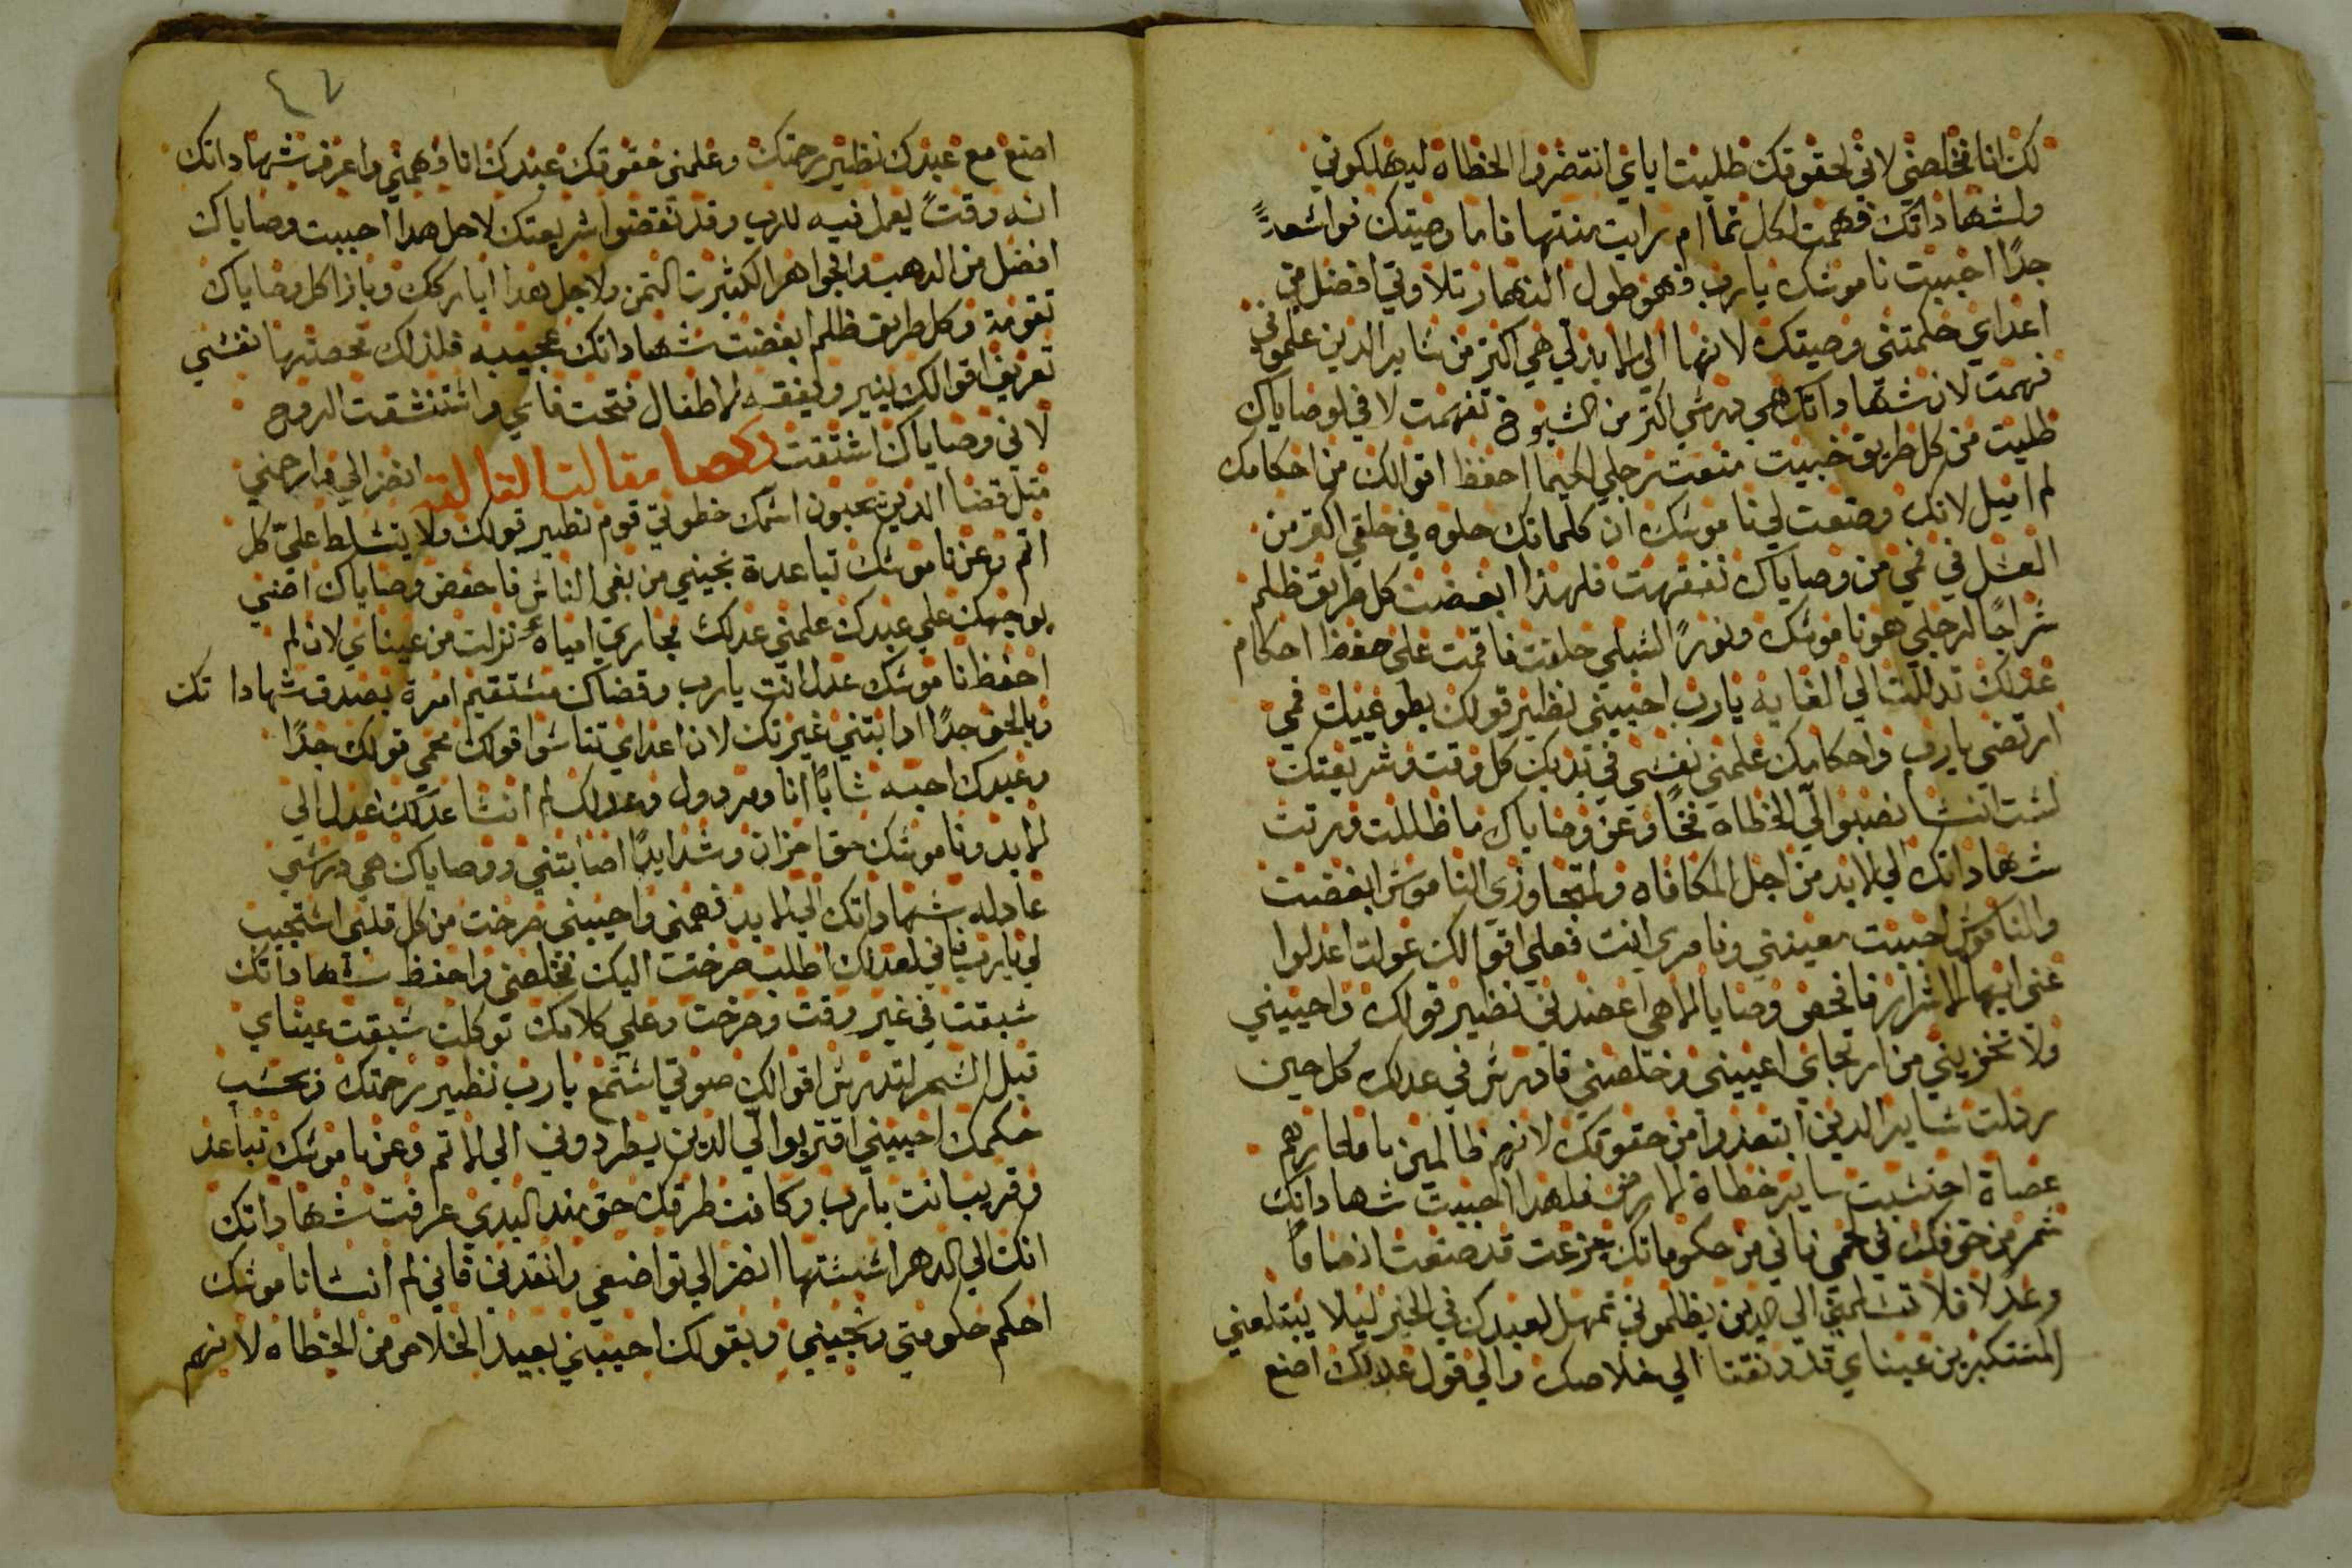 لك انا فخلصني لاني لحقوقك طلبت اياي انتضروا الخطاه ليهلكوني
ولشهاداتك فهمت لكل تماام رايت منتها فاما وصيتك فواسعةً
جدًا احببت ناموسك يارب فهو طول النهار تلاوتي افضل من
اعداي حكمتني وصيتك لانها الي الابد لي هي اكتر من ساير الدين علموني
فهمت لان شهاداتك هي درسي اكتر من الشيوخ تفهمت لاني لوصاياك
طلبت من كل طريق خبيت منعت رجلي لكيما احفظ اقوالك من احكامك
لم اميل لانك وضعت لي ناموسك ان كلماتك حلوه في حلقي اكتر من
العسل في فمي من وصاياك تفقهت فلهذا ابغضت كل طريق ظلم
سراجًا لرجلي هو ناموسك ونورًا لسبلي حلفت فاقمت علي حفظ احكام
عدلك تدللت الي الغايه يارب احييني نظير قولك بطوعيات فمي
ارتضي يارب واحكامك علمني نفسي في يديك كل وقت وشريعتك
لست انسا نصبوا لي الخطاه فخًا وعن وصاياك ما ظللت ورتت
شهاداتك الي الابد من اجل المكافاه ولمتجاوزي الناموس ابغضت
والناموس احببت معيني وناصري انت فعلي اقوالك عولت اعدلوا
عني ايها الاشرار فافحص وصايا الاهي اعضدني نظير قولك واحييني
ولا تخزيني من ارتجاي اعييني وخلصني فادرس في عدلك كل حين
ردلت ساير الدين ابتعدوا من حقوقك لانهم ظالمين بافكارهم
عصاة احتسبت ساير خطاة الارض فلهدا احببت شهاداتك
سمر من خوفك في لحمي فاني من حكوماتك جزعت قد صنعت انصافًا
وعدلا فلا تسلمني الي الدين يظلموني تمهل لعبدك في الخير ليلا يبتلعني
المستكبرين عيناي قد دنفتا الي خلاصك والي قول عدلك اصنع
٤٧
اصنع مع عبدك نظير رحمتك وعلمني حقوقك عبدك انا فهمني واعرف شهاداتك
انه وقتً يعمل فيه للرب وقد نقضوا شريعتك لاجل هدا احببت وصاياك
افضل من الدهب والجواهر الكثيرت التمن ولاجل هدا اباركك وبازا كل وصاياك
تقومة وكل طريق ظلم ابغضت شهاداتك عجيبه فلذلك فحصتها نفسي
تعريف اقوالك ينير ويفقه الاطفال فتحت فاي واستنشقت الروح
لاني وصاياك اشتقت انضر الي وارحمني
متل قضا الدين يحبون اسمك خطوتي قوم نظير قولك ولا يتسلط علي كل
اتم وعن ناموسك تباعدة نجيني من بغي الناس فاحفض وصاياك اضني
بوجهك علي عبدك علمني عدلك مجاري امياه نزلت من عيناي لان لم
احفظ ناموسك عدل انت يارب وقضاك مستقيم امرة بصدق شهاداتك
وبالحق جدًا ادابتني غيرتك لان اعداي تناسوا قولك محمي قولك جدًا
وعبدك احبه شابًا انا ومردول وعدلك لم انسا عدلك عدل الي
الابد وناموسك حق احزان وشدايدًا اصابتني ووصاياك هي درسي
عادله شهاداتك الي الابد فهمني واحييني صرخت من كل قلبي استجيب
لي يارب فاني لعدلك اطلب صرخت اليك فخلصني واحفظ شهاداتك
سبقت في غير وقت وصرخت وعلي كلامك توكلت سبقت عيناي
قبل السحر لتدرس اقوالك صوتي استمع يارب نظير رحمتك وبحسب
حكمك احييني اقتربوا لي الدين يطردوني الي الاتم وعن ناموسك تباعد
وقريب انت يارب وكافت طرقك حق مند البدي عرفت شهاداتك
انك الي الدهر اسستها انضر الي تواضعي وانقدني فاني لم انسا ناموسك
احكم حكومتي ونجيني وبقولك احييني بعيد الخلاص من الخطاه لانهم